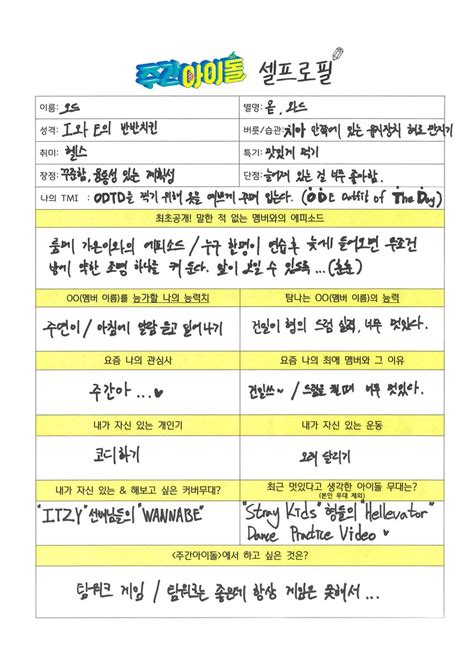 주간아이돌 셀프로필
이름: 오드 별명: 옫, 와드
성격: I와 E의 반반치킨 버릇/습관: 치아 안쪽에 있는 유지장치 혀로 만지기
취미: 헬스 특기: 맛있게 먹기
장점: 꾸준함, 융통성 있는 계획성 단점: 늘어져 있는 걸 너무 좋아함.
나의 TMI : ODTD을 찍기 위해 옷을 예쁘게 꾸며 입는다. (ODE Outfit of The Day)
최초공개! 말한 적 없는 멤버와의 에피소드
룸메 가온이와의 에피소드 / 누구 한명이 연습후 늦게 들어오면 무조건
방에 약한 조명 하나를 켜 둔다. 앞이 보일 수 있도록...(훈훈)
OO(멤버 이름)를 능가할 나의 능력치 탐나는 OO(멤버 이름)의 능력
주연이 / 아침에 알람 듣고 일어나기 건일이 형의 드럼 실력, 너무 멋있다.
요즘 나의 관심사 요즘 나의 최애 멤버와 그 이유
주간아...♥ 건일쓰~ / 드럼을 칠 때 너무 멋있다.
내가 자신 있는 개인기 내가 자신 있는 운동
코디하기 오래 달리기
내가 자신 있는 & 해보고 싶은 커버무대? 최근 멋있다고 생각한 아이돌 무대는?
(본인 무대 제외)
"ITZY" 선배님들의 "WANNABE" "Stray Kids" 형들의 "Hellevator"
Dance Practice Video ♥
<주간아이돌>에서 하고 싶은 것은?
팀워크 게임 / 팀워크는 좋은데 항상 게임은 못해서...